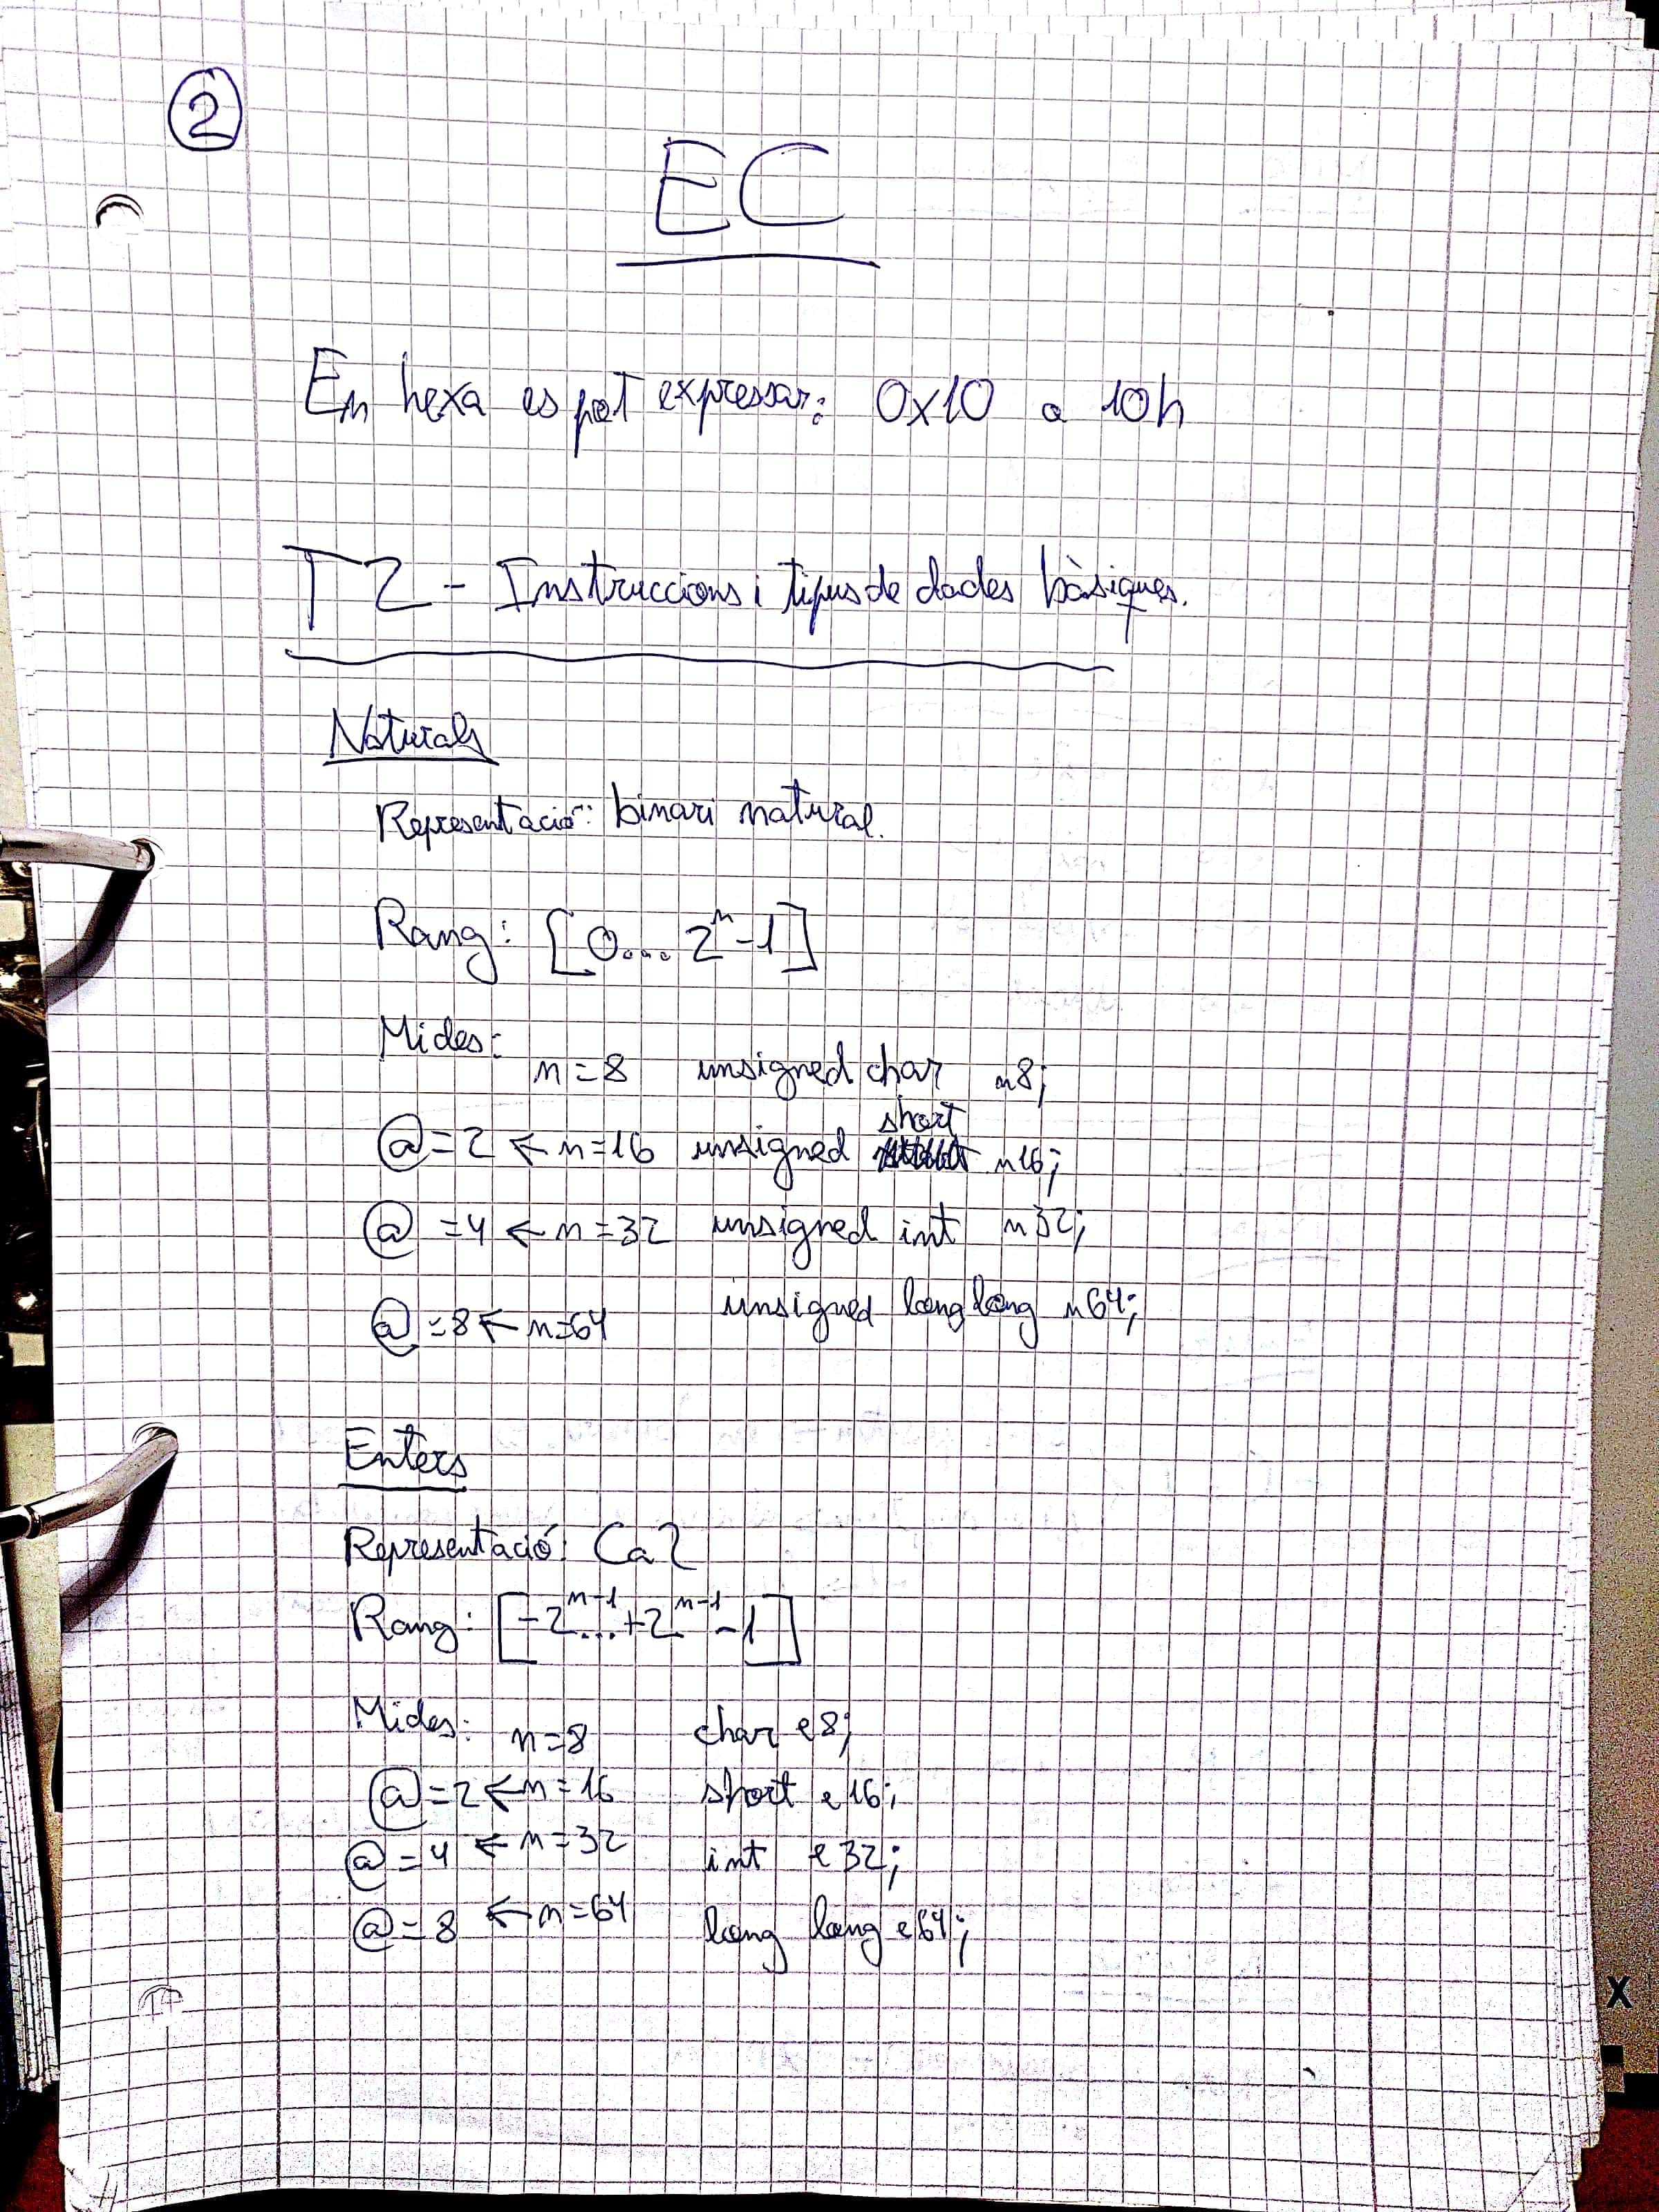 2
EC
En hexa es pot expressar: 0x10 o 10h
T2 - Instruccions i tipus de dades bàsiques.
Naturals
Representació: binari natural.
Rang: [0... 2ⁿ-1]
Mides:
n=8 unsigned char n8;
short
@=2 ← n=16 unsigned n16;
@=4 ← n=32 unsigned int n32;
@=8 ← n=64 unsigned long long n64;
Enters
Representació: Ca2
Rang: [-2ⁿ⁻¹...+2ⁿ⁻¹-1]
Mides: n=8 char e8;
@=2 ← n=16 short e16;
@=4 ← n=32 int e32;
@=8 ← n=64 long long e64;
X